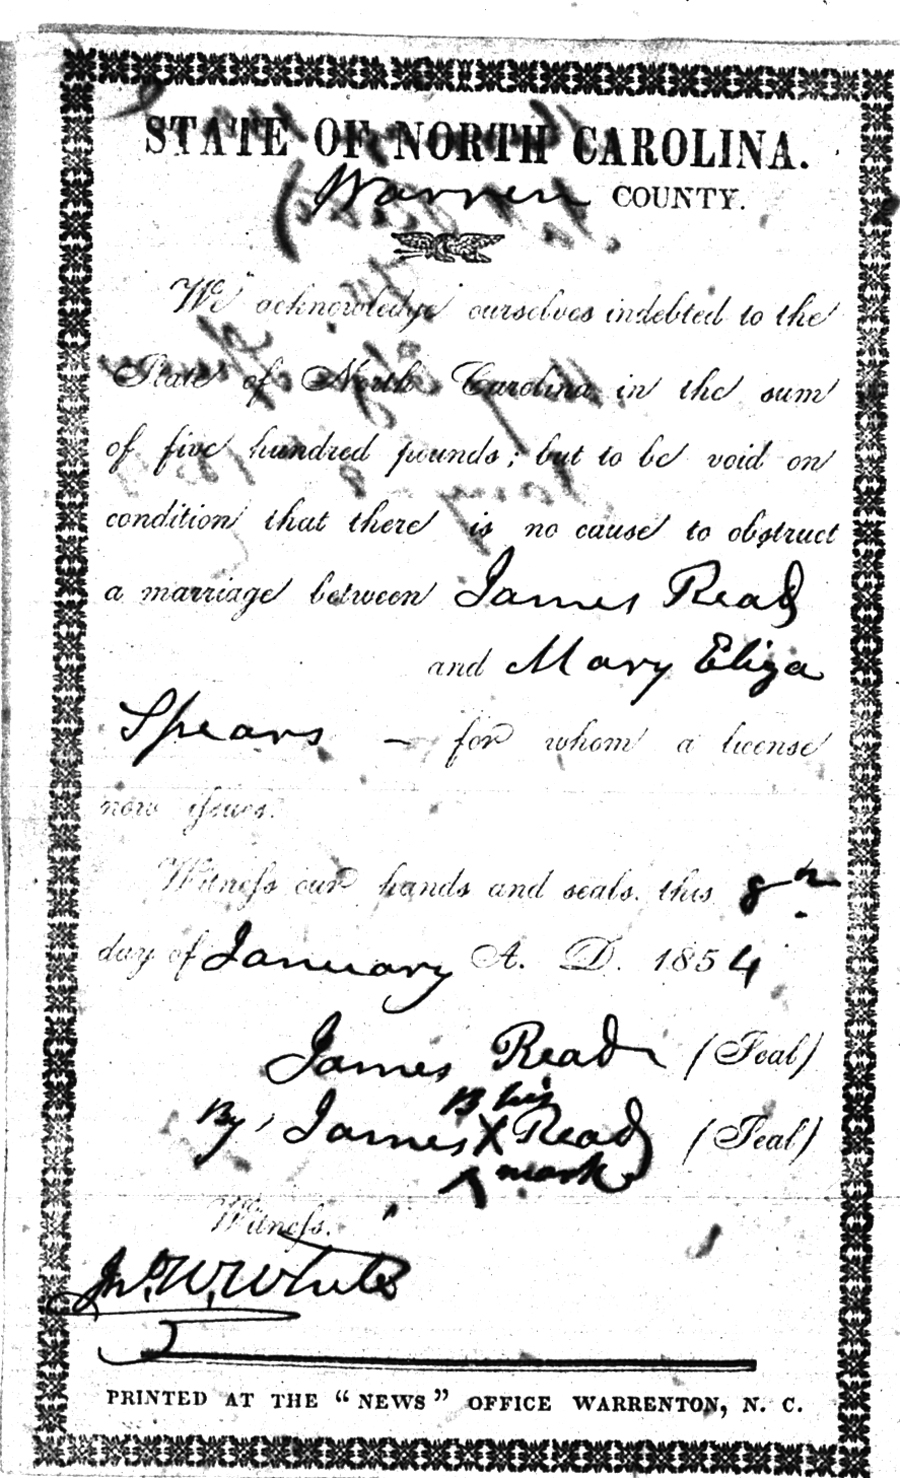 STATE OF NORTH CAROLINA.
Warren COUNTY.
We acknowledge ourselves indebted to the
State of North Carolina, in the sum
of five hundred pounds; but to be void on
condition that there is no cause to obstruct
a marriage between James Read
and Mary Eliza
Spears — for whom a license
now issues.
Witness our hands and seals. this 8th
day of January A. D. 1854
James Read (Seal)
B his
By James X Read (Seal)
mark
Witness.
Jno. W. White
PRINTED AT THE "NEWS" OFFICE WARRENTON, N. C.